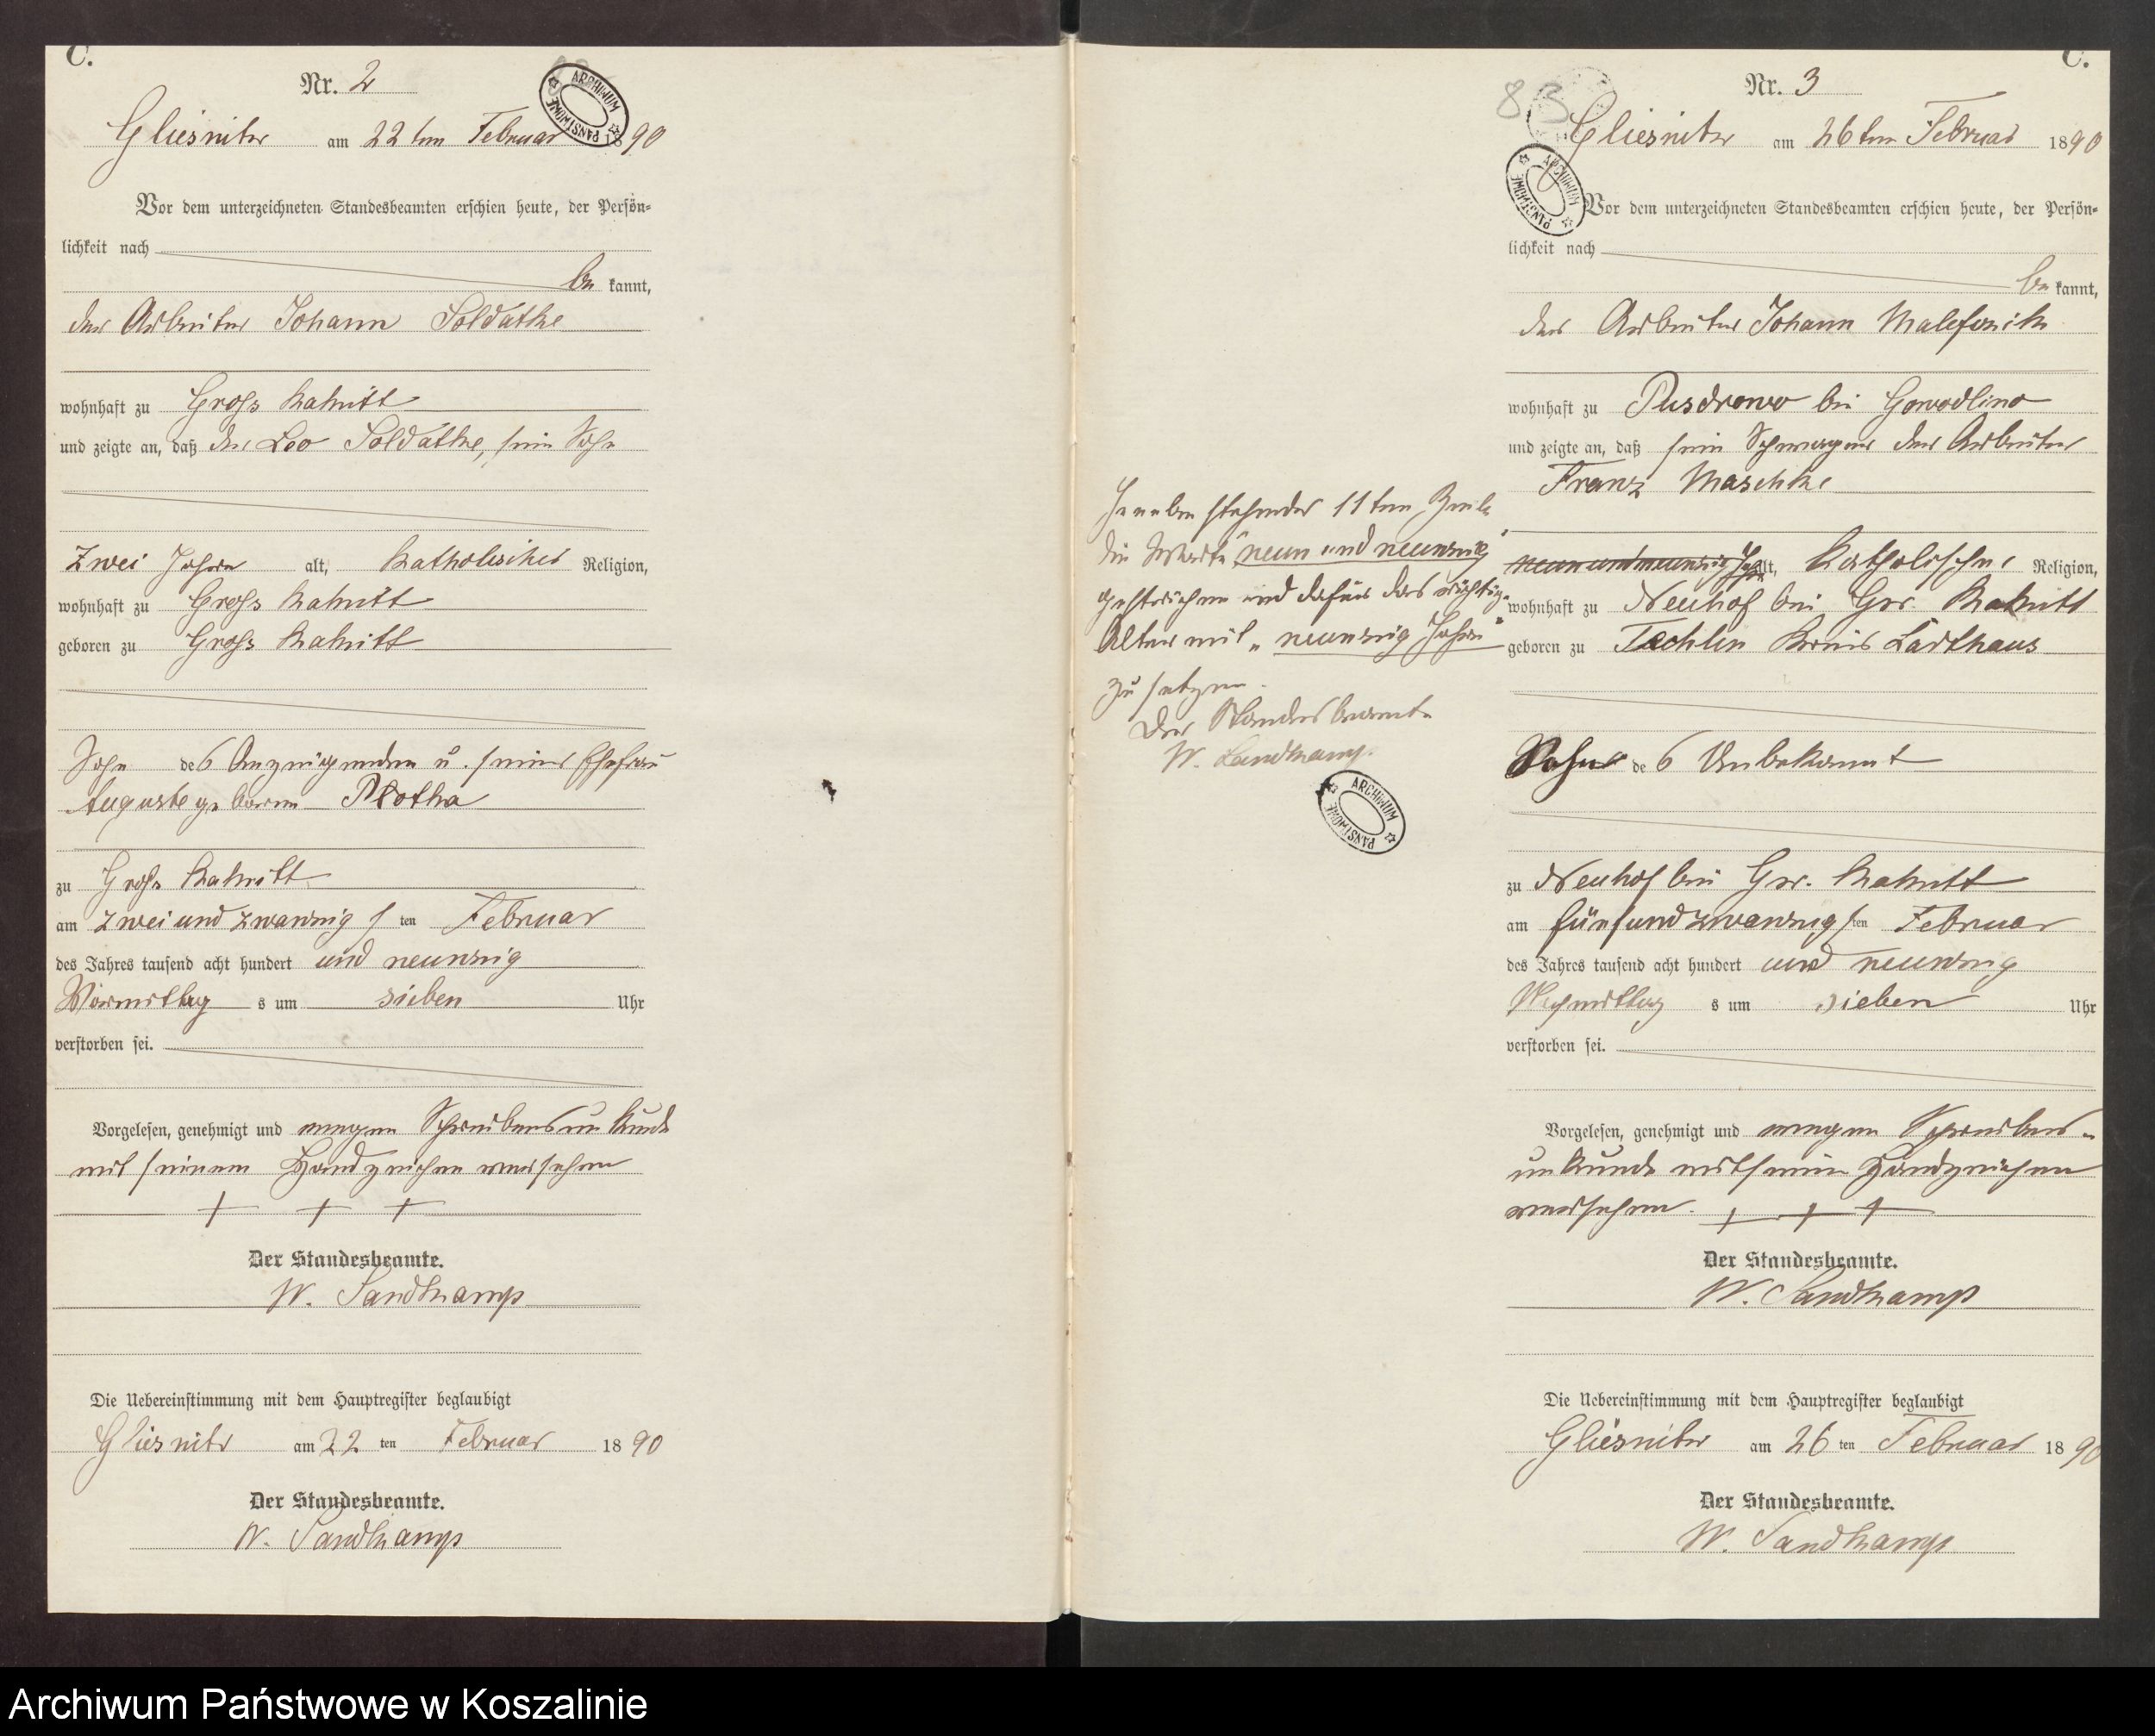 C.
Nr. 2
ARCHIWUM PAŃSTWOWE
Gliesnitz am 22ten Februar 1890
Vor dem unterzeichneten Standesbeamten erschien heute, der Persön-
lichkeit nach
be kannt,
der Arbeiter Johann Soldatke
wohnhaft zu Gross
und zeigte an, daß der Leo Soldatke, sein Sohn
Zwei Jahre alt, Katholischer Religion,
wohnhaft zu Gross
geboren zu Gross
Sohn des Anzeigenden u. seiner Ehefrau
Auguste geborene Plotka
zu Gross
am zwei und zwanzig s ten Februar
des Jahres tausend acht hundert und neunzig
Vormittag s um sieben Uhr
verstorben sei.
Vorgelesen, genehmigt und wegen Schreibensunkunde
mit seinem Handzeichen versehen
+ + +
Der Standesbeamte.
W. Sandkamp
Die Uebereinstimmung mit dem Hauptregister beglaubigt
Gliesnitz am 22 ten Februar 1890
Der Standesbeamte.
W. Sandkamp
stehender 11ten Zeile
die Worte "neun und neunzig"
gestrichen und dafür das richtige
Alter mit "neunzig Jahre"
zu setzen.
Der Standesbeamte
W. Sandkamp.
ARCHIWUM PAŃSTWOWE
C.
83
Nr. 3
Gliesnitz am 26ten Februar 1890
ARCHIWUM PAŃSTWOWE
Vor dem unterzeichneten Standesbeamten erschien heute, der Persön-
lichkeit nach
be kannt,
der Arbeiter Johann
wohnhaft zu Pusdrowo bei Gowodlino
und zeigte an, daß sein Schwager der Arbeiter
Franz Maschke
neun und neunzig Jahre alt, Katholischer Religion,
wohnhaft zu Neuhof bei Gr.
geboren zu Kreis Carthaus
Sohn des Unbekannt
zu Neuhof bei Gr.
am fünf und zwanzig s ten Februar
des Jahres tausend acht hundert und neunzig
Nachmittag s um sieben Uhr
verstorben sei.
Vorgelesen, genehmigt und wegen Schreibens-
unkunde mit seinem Handzeichen
versehen. + + +
Der Standesbeamte.
W. Sandkamp
Die Uebereinstimmung mit dem Hauptregister beglaubigt
Gliesnitz am 26 ten Februar 1890
Der Standesbeamte.
W. Sandkamp
Archiwum Państwowe w Koszalinie